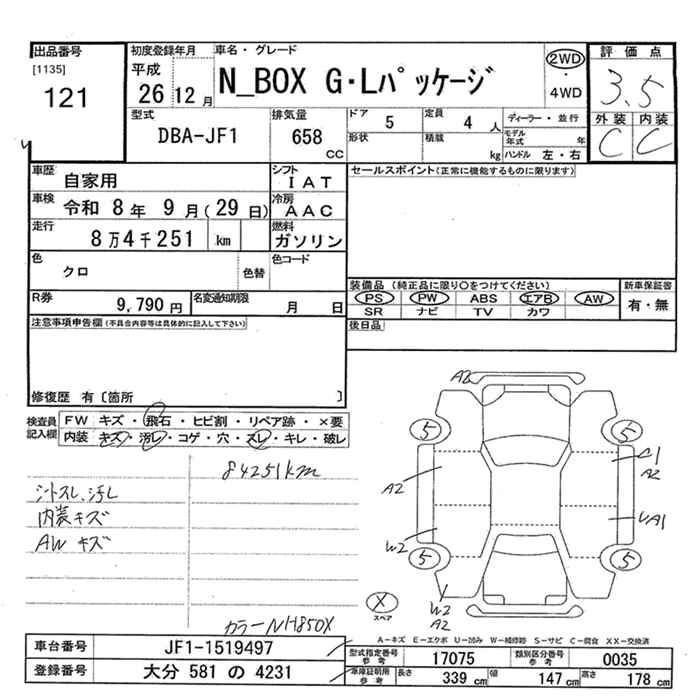 出品番号
[1135]
121
初度登録年月
平成
26 12 月
車名・グレード
N_BOX G・Lパッケージ
2WD
・
4WD
評価点
3.5
外装 内装
C C
型式
DBA-JF1
排気量
658
CC
ドア
5
定員
4 人
形状
積載
kg
ディーラー・並行
モデル年式 年
ハンドル 左・右
車歴
自家用
シフト
IAT
車検
令和 8年 9月(29日)
冷房
AAC
走行
8万4千251 km
燃料
ガソリン
色
クロ
色替
色コード
R券
9,790 円
名変通知期限
月 日
セールスポイント(正常に機能するものに限ります)
装備品 (純正品に限り○をつけてください)
PS PW ABS エアB AW
SR ナビ TV カワ
新車保証書
有・無
後日品
注意事項申告欄(不具合内容等は具体的に記入して下さい)
修復歴 有〔箇所 〕
検査員
記入欄
FW キズ・飛石・ヒビ割・リペア跡・×要
内装 キズ・汚レ・コゲ・穴・スレ・キレ・破レ
84251km
シートスレ、汚レ
内装キズ
AW キズ
カラーNH850X
A2
5
5
C1
A2
A2
UA1
W2
5
5
W2
A2
X
スペア
A-キズ E-エクボ U-凹み W-補修跡 S-サビ C-腐食 XX-交換済
車台番号
JF1-1519497
登録番号
大分 581 の 4231
型式指定番号
参考
17075
類別区分番号
参考
0035
車庫証明用
参考
長さ
339 cm
幅
147 cm
高さ
178 cm